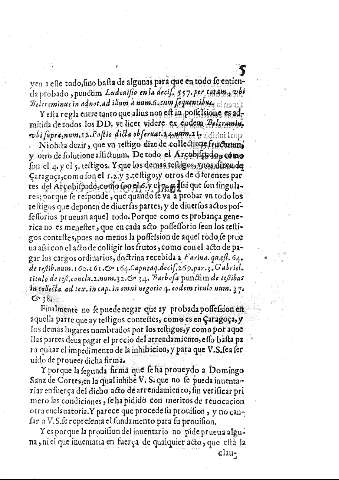 5
uen a este todo, sino basta de algunas para que en todo se entien
da probado, punctim Ludouisio en la decis. 557. per totam, vbi
Belterminus in adnot. ad illum à num. 6. cum sequentibus.
Y esta regla entre tanto que alius non est in possessione es ad-
mitida de todos los DD. vt licet videre ex eodem Beltramin.
vbi supra, num. 12. Postio dicta obseruat. 24. num. 21.
Ni obsta dezir, que vn testigo dize de collectione fructuum,
y otro de solutione asictuum. De todo el Arçobispado, como
son el 4. y el 5. testigos. Y que los demas testigos vnos dizen de
Çaragoça, como son el 1. 2. y 3. testigos; y otros de diferentes par
tes del Arçobispado, como son el 6. y 7. assi que son singula-
res: porque se responde, que quando se va a probar vn todo los
testigos que deponen de diuersas partes, y de diuersos actos pos-
sessorios prueuan aquel todo. Porque como es probança gene-
rica no es menester, que en cada acto possessorio sean los testi-
gos contestes, pues no menos la possession de aquel todo se prue
ua assi con el acto de colligir los frutos, como con el acto de pa-
gar los cargos ordinarios, doctrina recebida a Farina. quæst. 64.
de testib. num. 162. 161. & 164. Capuaq. decis. 269. par. 3. Gabriel.
titulo de test. conclu. 2. num. 32. & 34. Barbosa punctim de testibus
in collecta ad tex. in cap. in omni negotio 4. eodem titulo num. 37.
& 38.
Finalmente no se puede negar que ay probada possession en
aquella parte que ay testigos contestes, como es en Çaragoça, y
los demas lugares nombrados por los testigos, y como por aque
llas partes deua pagar el precio del arrendamiento, esso basta pa
ra quitar el impedimento de la inhibicion, y para que V. S. sea ser
uido de proueer dicha firma.
Y porque la segunda firma que se ha proueydo a Domingo
Sanz de Cortes, en la qual inhibe V. S. que no se pueda inuenta-
riar en fuerça del dicho acto de arrendamiento, sin verificar pri
mero las condiciones, se ha pidido con meritos de reuocacion
otra en su notoria. Y parece que procede su prouision, y no can-
sar a V. S. se representa el fundamento para su prouision.
Y es porque la prouision del inuentario no pide prueua algu-
na, ni el que inuentaria en fuerça de qualquier acto, que està la
clau-